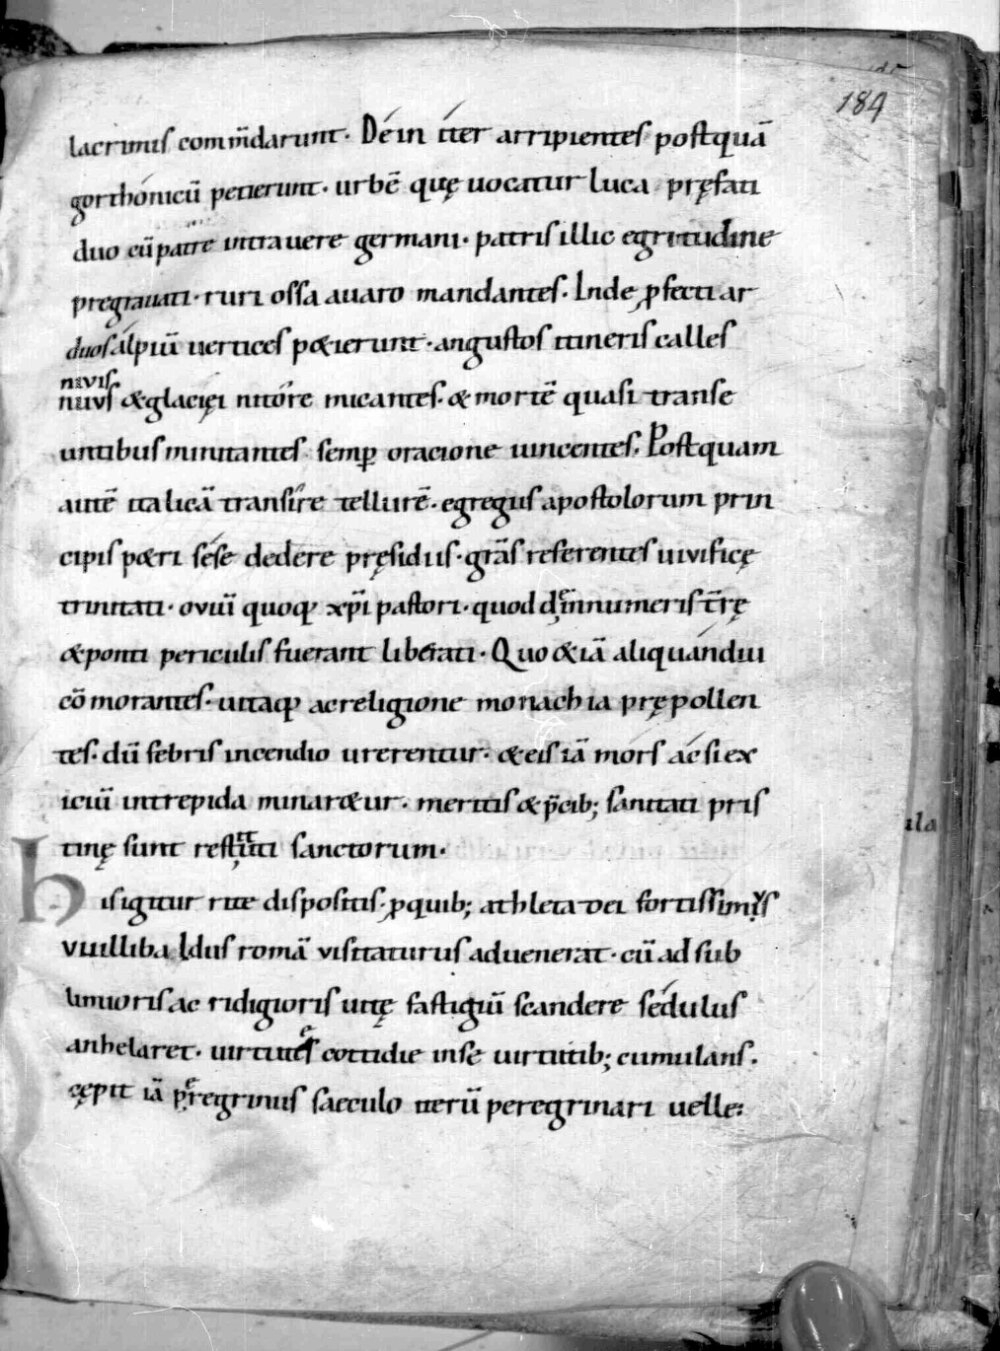 189
lacrimis com̄darunt. Déin íter arripientes postquā
gorthónicū petierunt. urbē quę uocatur luca pręfati
duo cū patre intrauere germani. patris illic egritudine
pregrauati. ruri ossa auaro mandantes. Inde ꝓfecti ar
duos álpiū uertices p&ierunt. angustos itineris calles
nivis.
niuis &glacięi nitóre micantes. & mortē quasi transe
untibus minitantes semꝑ oracione uincentes. Postquam
autē italicā transire tellurē. egregiis apostolorum prin
cipis p&ri sése dedere pręsidiis. grās referentes uiuificę
trinitati. oviū quoqꝫ xp̄i pastori. quod de innumeris t̄rę
&ponti periculis fuerant liberati. Quo &iā aliquándiu
cōmorantes. uitaqꝫ ac religione monachia prępollen
tes. dū febris incendio urerentur. &eis iā mórs ác si ex
iciū intrepida minar&ur. meritis &p̄cib; sanitati pris
tinę sunt restituti sanctorum.
His igitur rite dispositis. ꝓ quib; athleta dei fortissimus
vuillibaldus romā visitaturus aduenerat. cū ad sub
limioris ac ridigioris uitę fastigiū scandere sédulus
anhelaret. uirtutes cottidie in se uirtutib; cumulans.
cępit iā peregrinus saeculo iterū peregrinari uelle:
ila